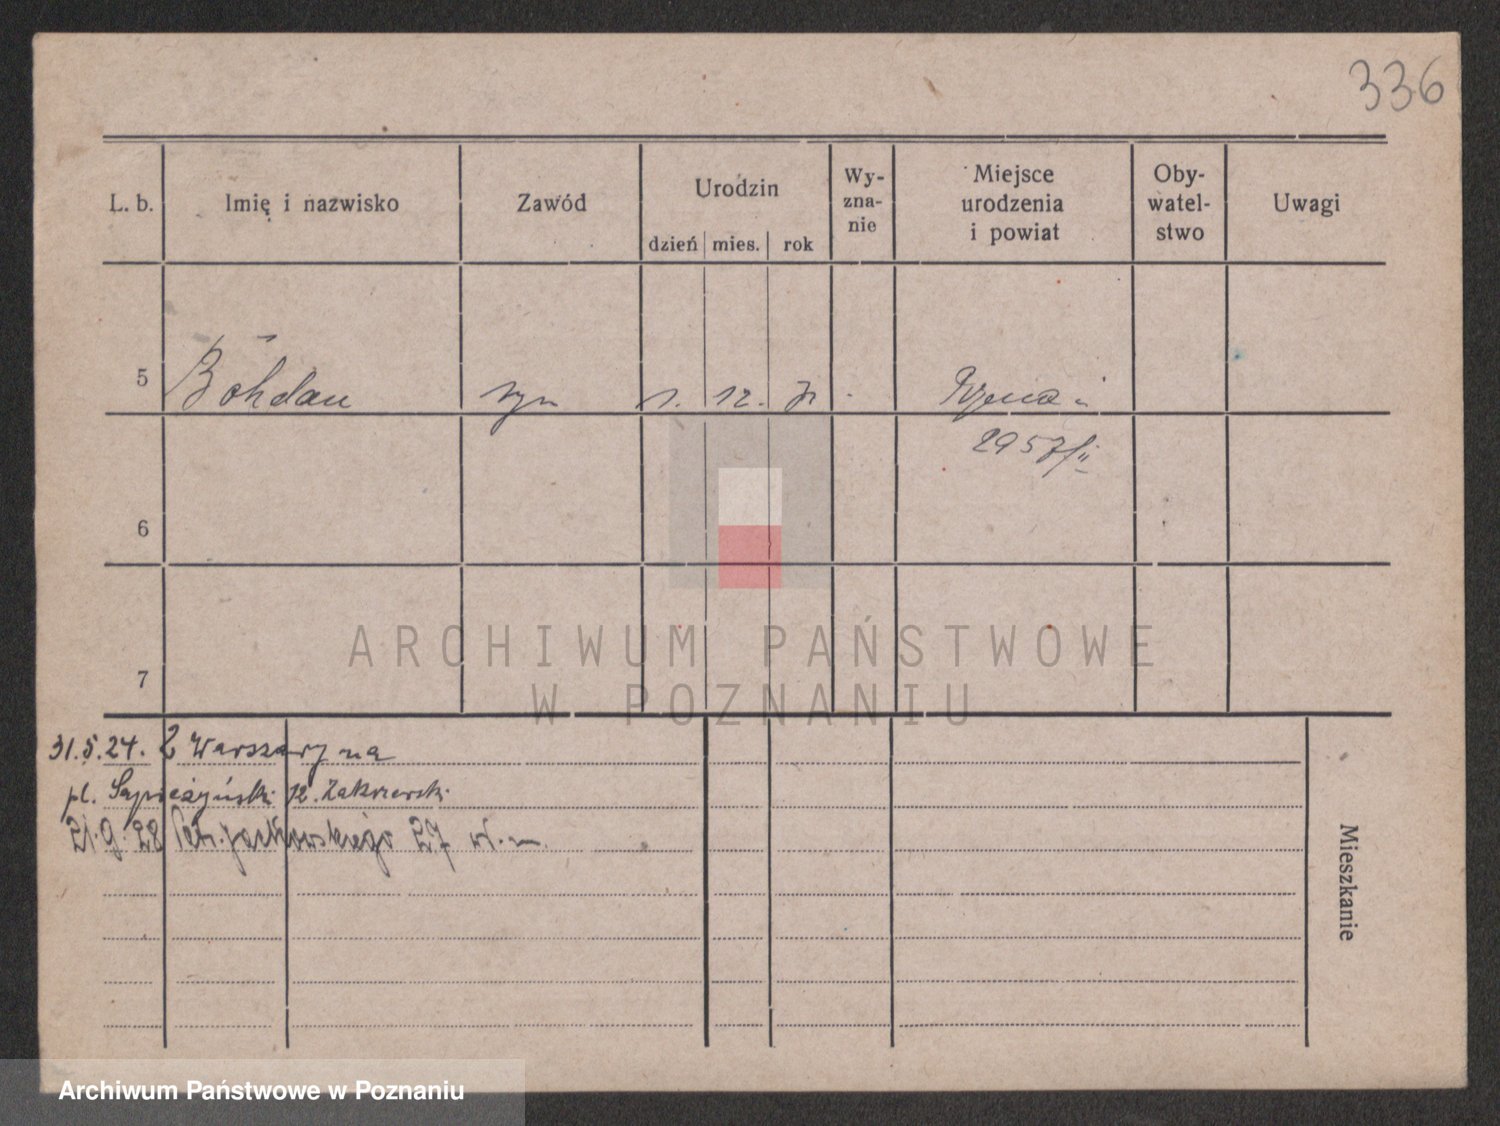 336
L. b. Imię i nazwisko Zawód Urodzin Wy-zna-nie Miejsce urodzenia i powiat Oby-watel-stwo Uwagi
dzień mies. rok
5 Bohdan syn 1. 12.
6
7
ARCHIWUM PAŃSTWOWE
W POZNANIU
31.5.24. Z Warszawy na
pl. Sapieżyński 12. Zakrzewski
21.9.28 Patr. Jackowskiego 27
Mieszkanie
Archiwum Państwowe w Poznaniu